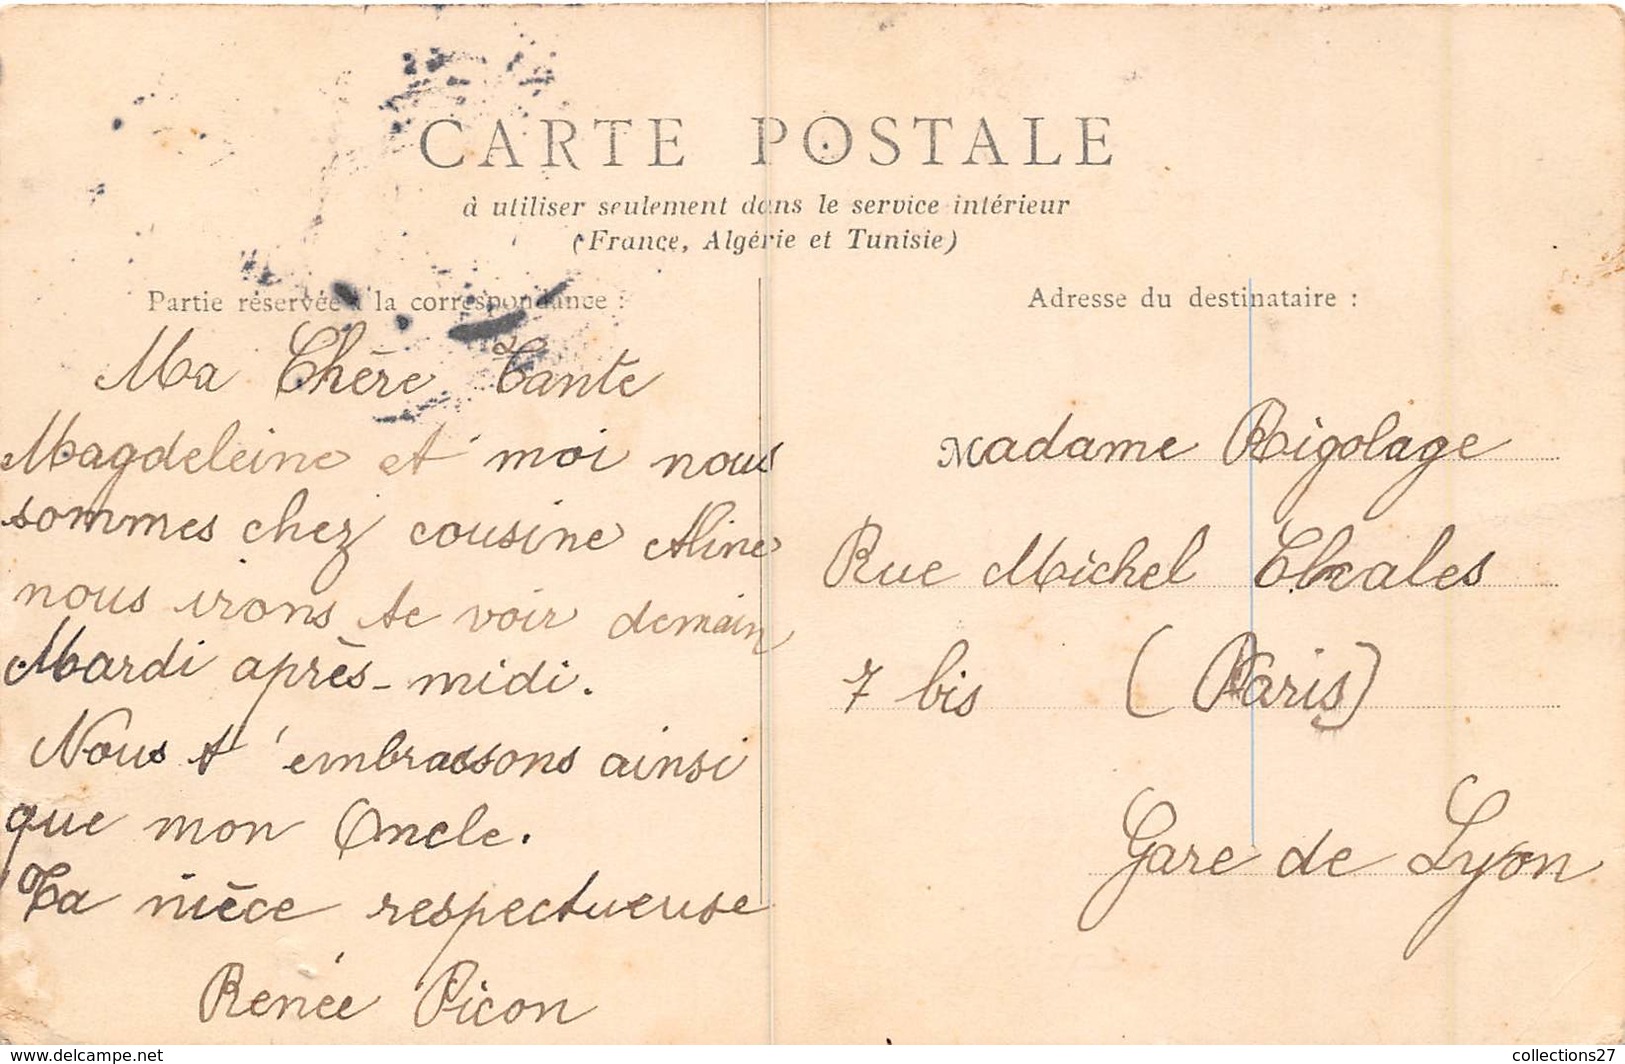 CARTE POSTALE
à utiliser seulement dans le service intérieur
(France, Algérie et Tunisie)
Partie réservée à la correspondance :
Ma Chère Tante
Magdeleine et moi nous
sommes chez cousine Aline
nous irons te voir demain
Mardi après-midi.
Nous t'embrassons ainsi
que mon Oncle.
Ta nièce respectueuse
Renée Picon
Adresse du destinataire :
Madame Rigolage
Rue Michel Chales
7 bis (Paris)
Gare de Lyon
www.delcampe.net
collections27